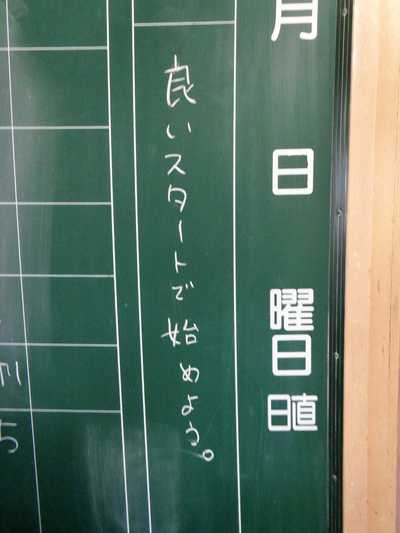 月
日
曜日
日直
良いスタートで始めよう。